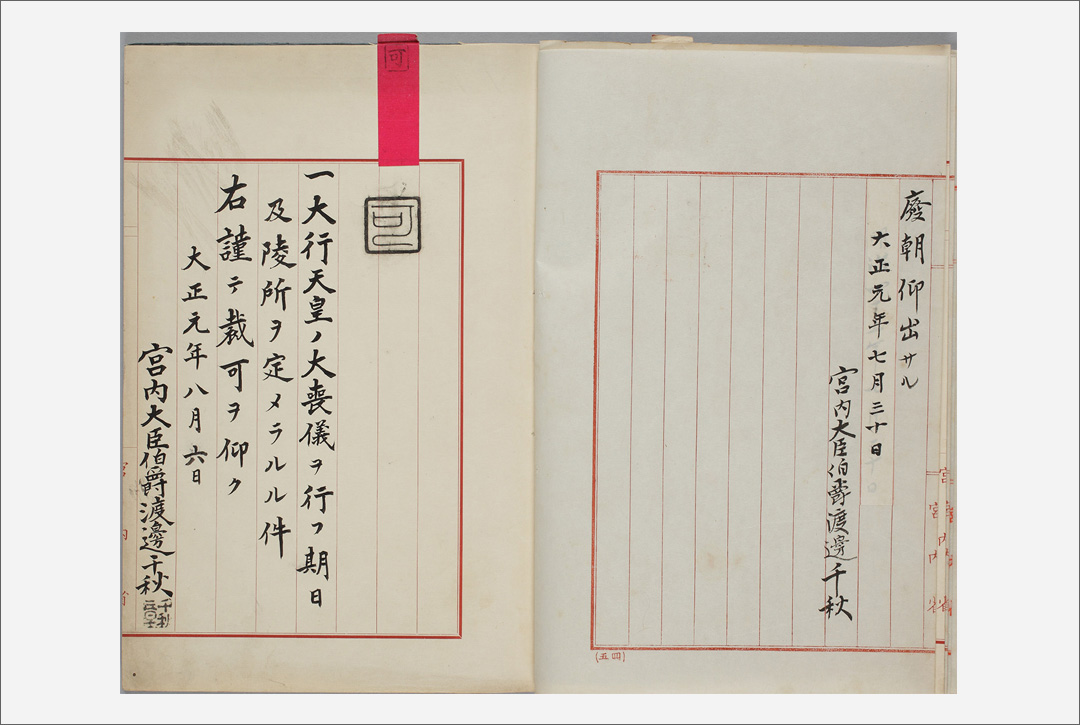 廢朝仰出サル
大正元年七月三十日
宮内大臣伯爵渡邊千秋
(五四)
可
可
一大行天皇ノ大喪儀ヲ行フ期日
及陵所ヲ定メラルル件
右謹テ裁可ヲ仰ク
大正元年八月六日
宮内大臣伯爵渡邊千秋